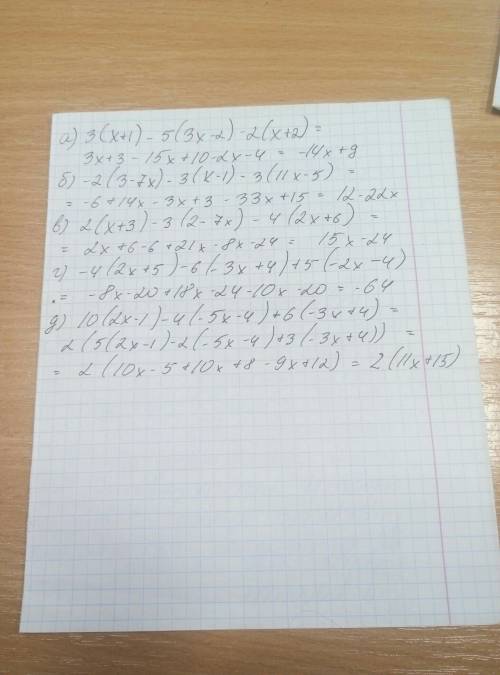 а) 3(x+1) - 5(3x-2) - 2(x+2) =
3x+3 - 15x+10-2x-4 = -14x+9
б) -2(3-7x) - 3(x-1) - 3(11x-5) =
= -6+14x - 3x+3 - 33x+15 = 12-22x
в) 2(x+3) - 3(2-7x) - 4(2x+6) =
= 2x+6-6+21x-8x-24 = 15x-24
г) -4(2x+5) - 6(-3x+4) + 5(-2x-4)
= -8x-20+18x-24-10x-20 = -64
д) 10(2x-1) - 4(-5x-4) + 6(-3x+4) =
2(5(2x-1) - 2(-5x-4) + 3(-3x+4)) =
= 2(10x-5+10x+8-9x+12) = 2(11x+15)